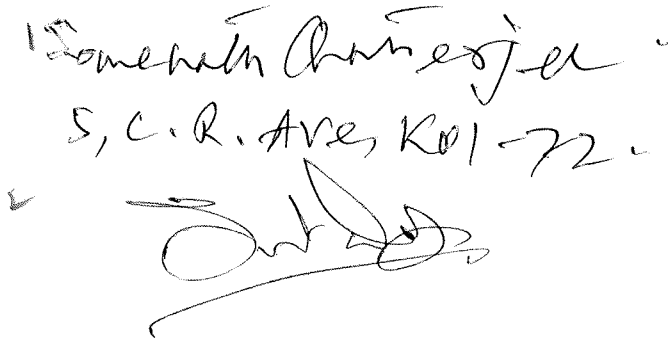 1 Somenath Chatterjee.
5, C. R. Ave, Kol-72.
2